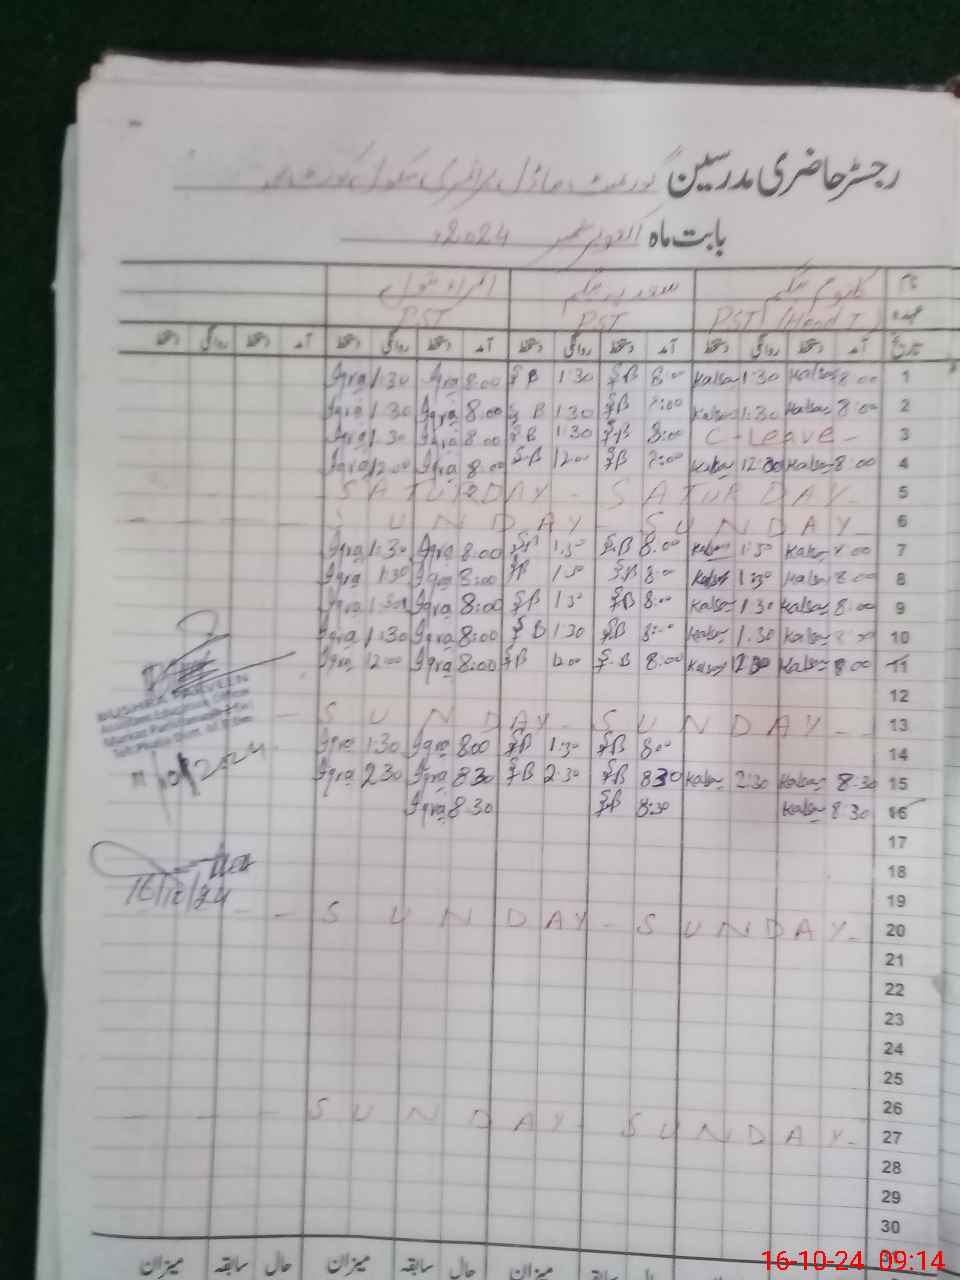 رجسٹر حاضری مدرسین گورنمنٹ ماڈل پرائمری سکول
بابت ماہ اکتوبر 2024
نام کلثوم بیگم
عہدہ PST (Head T) PST PST
تاریخ آمد دستخط روانگی دستخط آمد دستخط روانگی دستخط آمد دستخط روانگی دستخط آمد دستخط روانگی دستخط
1 8:00 Kalsoom 1:30 Kalsoom 8:00 S.B 1:30 S.B 8:00 Iqra 1:30 Iqra
2 8:00 Kalsoom 1:30 Kalsoom 8:00 S.B 1:30 S.B 8:00 Iqra 1:30 Iqra
3 C-Leave- 8:00 S.B 1:30 S.B 8:00 Iqra 1:30 Iqra
4 8:00 Kalsoom 12:00 Kalsoom 8:00 S.B 12:00 S.B 8:00 Iqra 12:00 Iqra
5 SATURDAY - SATURDAY -
6 SUNDAY - SUNDAY -
7 8:00 Kalsoom 1:30 Kalsoom 8:00 S.B 1:30 S.B 8:00 Iqra 1:30 Iqra
8 8:00 Kalsoom 1:30 Kalsoom 8:00 S.B 1:30 S.B 8:00 Iqra 1:30 Iqra
9 8:00 Kalsoom 1:30 Kalsoom 8:00 S.B 1:30 S.B 8:00 Iqra 1:30 Iqra
10 8:00 Kalsoom 1:30 Kalsoom 8:00 S.B 1:30 S.B 8:00 Iqra 1:30 Iqra
11 8:00 Kalsoom 12:00 Kalsoom 8:00 S.B 12:00 S.B 8:00 Iqra 12:00 Iqra
12
13 SUNDAY - SUNDAY -
14 8:00 S.B 1:30 S.B 8:00 Iqra 1:30 Iqra
15 8:30 Kalsoom 2:30 Kalsoom 8:30 S.B 2:30 S.B 8:30 Iqra 2:30 Iqra
16 8:30 Kalsoom 8:30 S.B 8:30 Iqra
17
18
19
20 SUNDAY - SUNDAY -
21
22
23
24
25
26
27 SUNDAY - SUNDAY -
28
29
30
31
حال سابقہ میزان حال سابقہ میزان حال سابقہ میزان
BUSHRA PARVEEN
11/10/2024
16/10/24
16-10-24 09:14